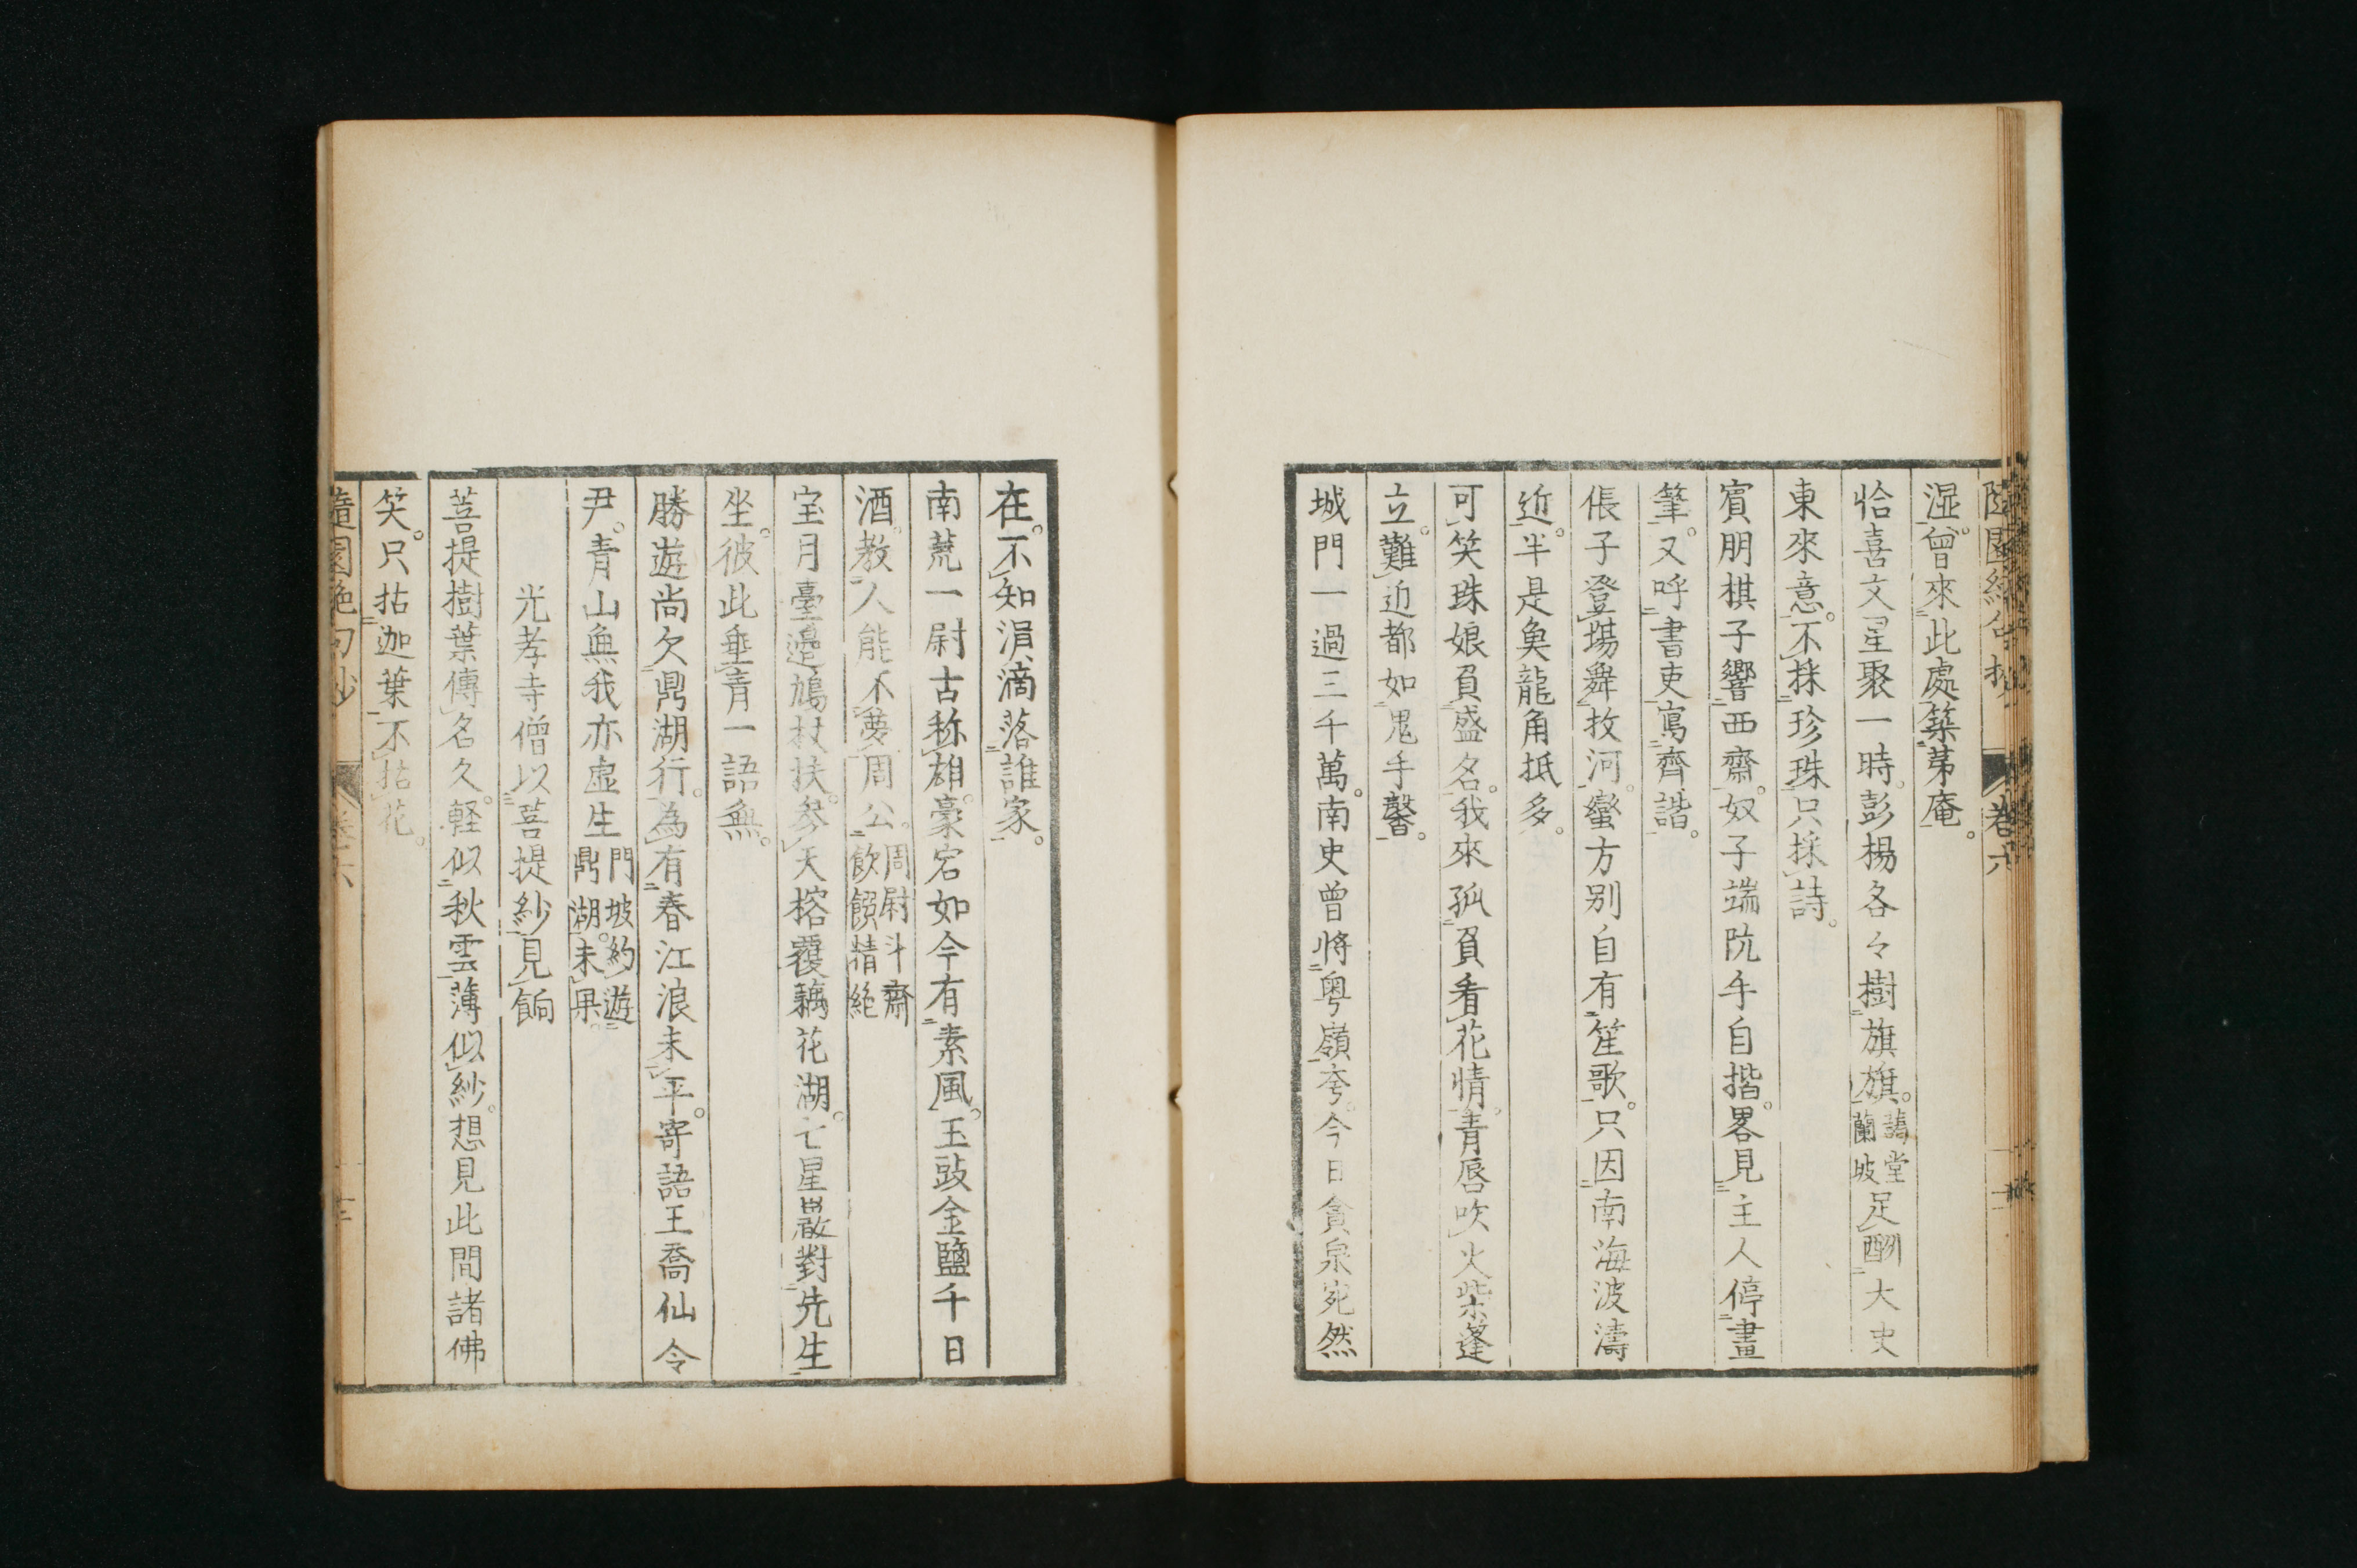 隨園絕句抄 卷六
湿。曾來此處築茅庵。
恰喜文星聚一時。彭楊各々樹旗旗。藹堂蘭坡足酬大史
東來意。不採珍珠只採詩。
賓朋棋子響西齋。奴子端阬手自揩。畧見主人停畫
筆。又呼書吏寫齊諧。
倀子登場舞扠河。蠻方別自有笙歌。只因南海波濤
近。半是魚龍角抵多。
可笑珠娘負盛名。我來孤負看花情。青唇吹火柴蓬
立。難近都如鬼手馨。
城門一過三千萬。南史曾將粤嶺夸。今日貪泉宛然
在。不知涓滴落誰家。
南荒一尉古称雄。豪宕如今有素風。玉豉金鹽千日
酒。教人能不夢周公。周尉斗齋飲饌精絕
宝月臺邊鳩杖扶。參天榕覆藕花湖。亡星嚴對先生
坐。彼此垂青一語無。
勝遊尚欠鼎湖行。為有春江浪未平。寄語王喬仙令
尹。青山無我亦虛生門坡約遊鼎湖。未果。
光孝寺僧以菩提紗見餉
菩提樹葉傳名久。輕似秋雲薄似紗。想見此間諸佛
笑。只拈迦葉不拈花。
隨園絕句抄 卷六